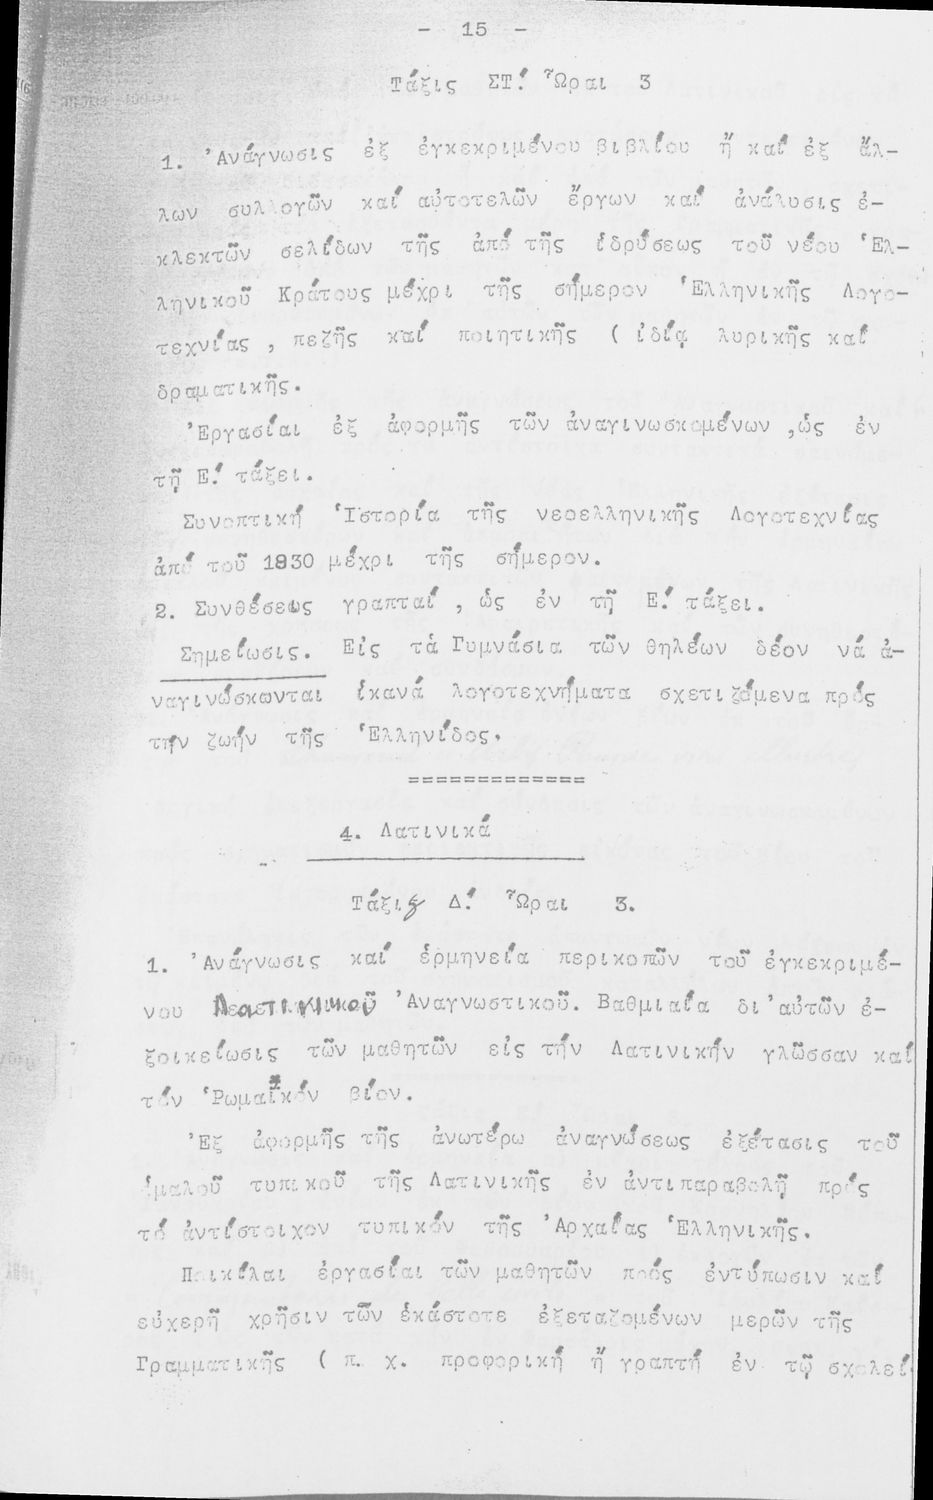 - 15 -
Τάξις ΣΤ! Ὧραι 3
1. Ἀνάγνωσις ἐξ ἐγκεκριμένου βιβλίου ἤ καί ἐξ ἄλ-
λων συλλογῶν καί αὐτοτελῶν ἔργων καί ἀνάλυσις ἐ-
κλεκτῶν σελίδων τῆς ἀπό τῆς ἱδρύσεως τοῦ νέου Ἑλ-
ληνικοῦ Κράτους μέχρι τῆς σήμερον Ἑλληνικῆς Λογο-
τεχνίας , πεζῆς καί ποιητικῆς ( ἰδίᾳ λυρικῆς καί
δραματικῆς.
Ἐργασίαι ἐξ ἀφορμῆς τῶν ἀναγινωσκομένων ,ὡς ἐν
τῇ Ε! τάξει.
Συνοπτική Ἱστορία τῆς νεοελληνικῆς Λογοτεχνίας
ἀπό τοῦ 1830 μέχρι τῆς σήμερον.
2. Συνθέσεως γραπταί , ὡς ἐν τῇ Ε! τάξει.
Σημείωσις. Εἰς τά Γυμνάσια τῶν θηλέων δέον νά ἀ-
ναγινώσκωνται ἱκανά λογοτεχνήματα σχετιζόμενα πρός
τήν ζωήν τῆς Ἑλληνίδος.
=============
4. Λατινικά
Τάξις Δ! Ὧραι 3.
1. Ἀνάγνωσις καί ἑρμηνεία περικοπῶν τοῦ ἐγκεκριμέ-
νου Ἀναγνωστικοῦ. Βαθμιαία δι'αὐτῶν ἐ-
ξοικείωσις τῶν μαθητῶν εἰς τήν Λατινικήν γλῶσσαν καί
τόν Ῥωμαϊκόν βίον.
Ἐξ ἀφορμῆς τῆς ἀνωτέρω ἀναγνώσεως ἐξέτασις τοῦ
ὁμαλοῦ τυπικοῦ τῆς Λατινικῆς ἐν ἀντιπαραβολῇ πρός
τό ἀντίστοιχον τυπικόν τῆς Ἀρχαίας Ἑλληνικῆς.
Ποικίλαι ἐργασίαι τῶν μαθητῶν πρός ἐντύπωσιν καί
εὐχερῆ χρῆσιν τῶν ἑκάστοτε ἐξεταζομένων μερῶν τῆς
Γραμματικῆς ( π. χ. προφορική ἤ γραπτή ἐν τῷ σχολεί